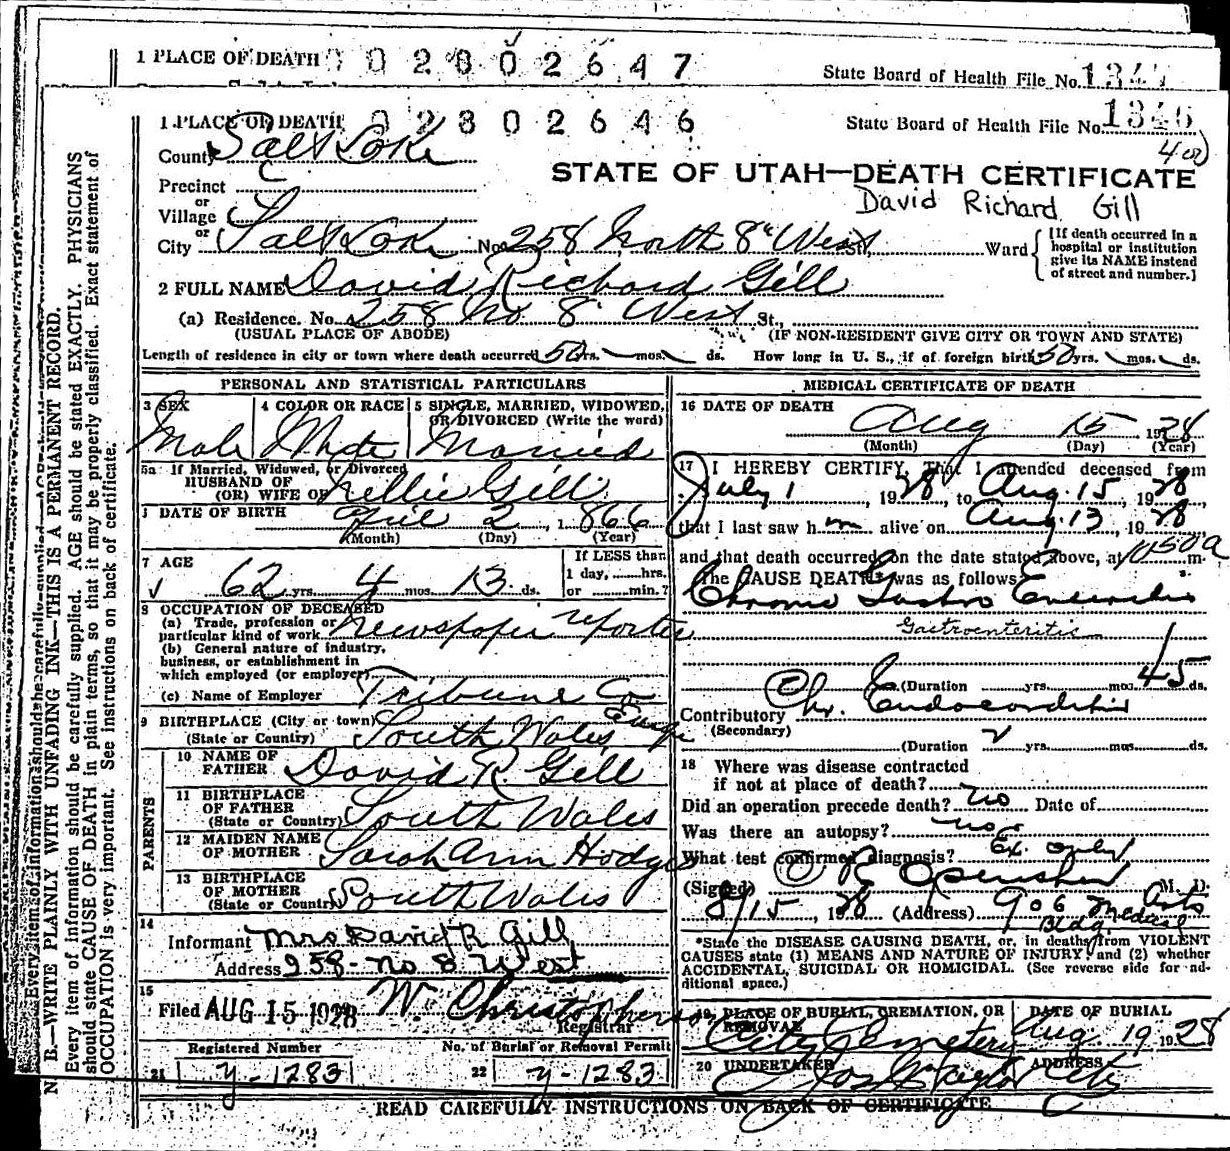 1 PLACE OF DEATH 0 0 2 8 0 2 6 4 7
State Board of Health File No. 134
1 PLACE OF DEATH 0 2 8 0 2 6 4 6
State Board of Health File No. 1346
County Salt Lake
400
STATE OF UTAH—DEATH CERTIFICATE
Precinct
David Richard Gill
or
Village
or
City Salt Lake No. 258 North 8" West St., Ward
[If death occurred in a
hospital or institution
give its NAME instead
of street and number.]
2 FULL NAME David Richard Gill
(a) Residence. No. 258 No 8 West St.,
(USUAL PLACE OF ABODE) (IF NON-RESIDENT GIVE CITY OR TOWN AND STATE)
Length of residence in city or town where death occurred 50 yrs. mos. ds. How long in U. S., if of foreign birth 50 yrs. mos. ds.
PERSONAL AND STATISTICAL PARTICULARS
3 SEX
Male
4 COLOR OR RACE
White
5 SINGLE, MARRIED, WIDOWED,
OR DIVORCED (Write the word)
Married
5a If Married, Widowed, or Divorced
HUSBAND OF
(OR) WIFE OF Nellie Gill
DATE OF BIRTH April 2, 1866
(Month) (Day) (Year)
7 AGE
62 yrs. 4 mos. 13 ds.
If LESS than
1 day, hrs.
or min.?
8 OCCUPATION OF DECEASED
(a) Trade, profession or
particular kind of work Newspaper reporter
(b) General nature of industry,
business, or establishment in
which employed (or employer)
(c) Name of Employer Tribune Co
9 BIRTHPLACE (City or town)
(State or Country) South Wales
PARENTS
10 NAME OF
FATHER David R. Gill
11 BIRTHPLACE
OF FATHER
(State or Country) South Wales
12 MAIDEN NAME
OF MOTHER Sarah Ann Hodges
13 BIRTHPLACE
OF MOTHER
(State or Country) South Wales
14
Informant Mrs David R Gill
Address 258 - No 8 West
15
Filed AUG 15 1928 W. Christopherson
Registrar
Registered Number No. of Burial or Removal Permit
21 y-1283 22 y-1283
MEDICAL CERTIFICATE OF DEATH
16 DATE OF DEATH
Aug 15 1928
(Month) (Day) (Year)
17 I HEREBY CERTIFY, That I attended deceased from
July 1, 1928, to Aug. 15, 1928
that I last saw h m alive on Aug. 13, 1928
and that death occurred on the date stated above, at 1050a m.
The CAUSE DEATH was as follows:
Chronic Gastro Enteritis
Gastroenteritic
(Duration yrs. mos. 45 ds.
Contributory Chr. Endocarditis
(Secondary)
(Duration yrs. mos. ds.
18 Where was disease contracted
if not at place of death?
Did an operation precede death? no Date of
Was there an autopsy? no
What test confirmed diagnosis? Ex. only
(Signed) R Openshaw M. D.
8/15, 1928 (Address) 906 Medical Arts
Bldg.
*State the DISEASE CAUSING DEATH, or, in deaths from VIOLENT
CAUSES state (1) MEANS AND NATURE OF INJURY and (2) whether
ACCIDENTAL, SUICIDAL OR HOMICIDAL. (See reverse side for ad-
ditional space.)
19 PLACE OF BURIAL, CREMATION, OR
REMOVAL
City Cemetery
DATE OF BURIAL
Aug. 19 1928
20 UNDERTAKER
Jos Wm Taylor
ADDRESS
City
READ CAREFULLY INSTRUCTIONS ON BACK OF CERTIFICATE
N. B.—WRITE PLAINLY WITH UNFADING INK—THIS IS A PERMANENT RECORD.
Every item of information should be carefully supplied. AGE should be stated EXACTLY. PHYSICIANS
should state CAUSE OF DEATH in plain terms, so that it may be properly classified. Exact statement of
OCCUPATION is very important. See instructions on back of certificate.